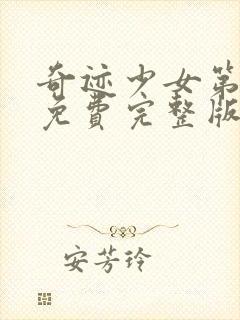 奇迹少女第
免费完整版
安芳玲